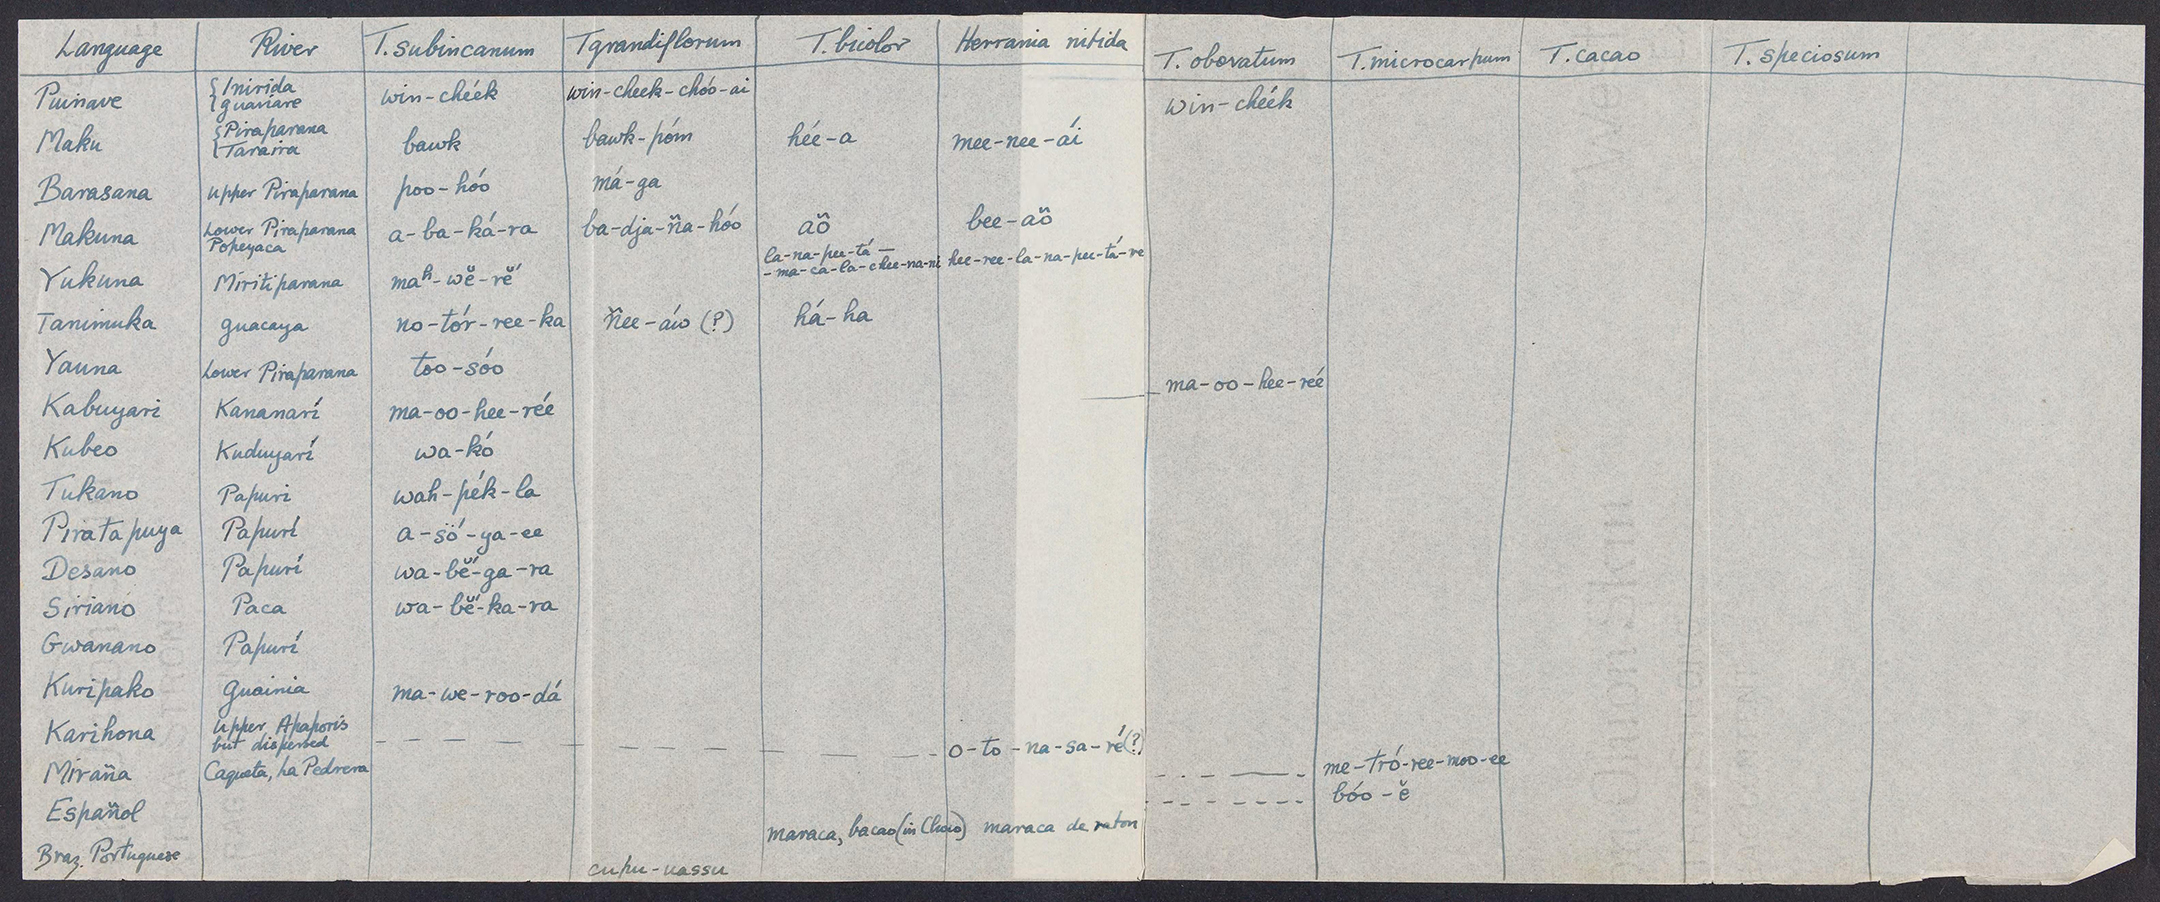 Language River T. subincanum T grandiflorum T. bicolor Herrania nitida T. obovatum T. microcarpum T. cacao T. speciosum
Puinave { Inirida win-chéek win-cheek-chóo-ai win-chéek
{ Guaviare
Maku { Piraparana bawk bawk-póm hée-a mee-nee-ái
{ Taraira
Barasana Upper Piraparana poo-hóo má-ga
Makuna Lower Piraparana a-ba-ká-ra ba-dja-ña-hóo aö̆ bee-aö̆
Popeyaca
la-na-pee-tá-
-ma-ca-la-chee-na-ni hee-ree-la-na-pee-tá-re
Yukuna Miritiparana maʰ-wĕ-rĕ́
Tanimuka Guacaya no-tór-ree-ka ñee-áw (?) há-ha
Yauna Lower Piraparana too-sóo
Kabuyari Kananarí ma-oo-hee-rée ma-oo-hee-reé
Kubeo Kuduyarí wa-kó
Tukano Papuri wah-pék-la
Piratapuya Papurí a-sö́-ya-ee
Desano Papurí wa-bĕ́-ga-ra
Siriano Paca wa-bĕ́-ka-ra
Gwanano Papurí
Kuripako Guainia ma-we-roo-dá
Karihona Upper Apaporis o-to-na-sa-ré (?) me-tró-ree-moo-ee
but dispersed
Miraña Caquetá, La Pedrera bóo-ĕ
Español maraca, bacao (in Choco) maraca de raton
Braz. Portuguese cupu-uassu